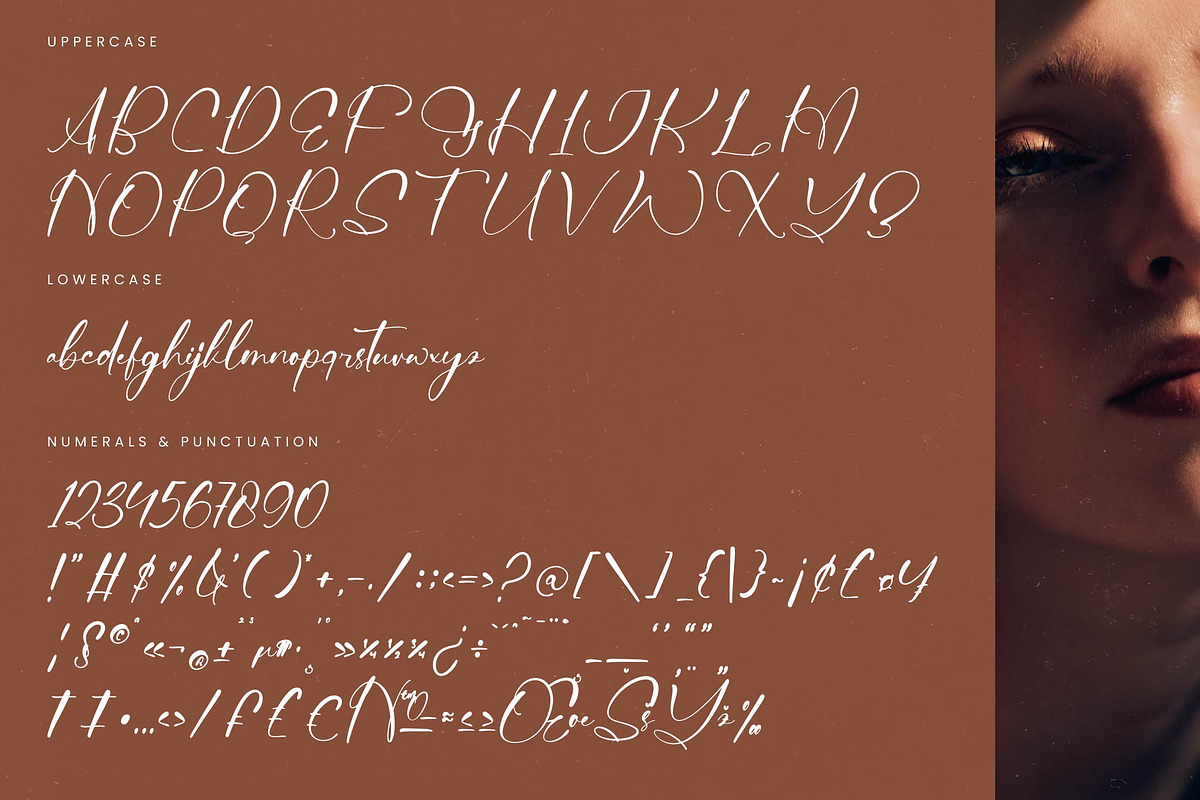 UPPERCASE
ABCDEFGHIJKLM
NOPQRSTUVWXYZ
LOWERCASE
abcdefghijklmnopqrstuvwxyz
NUMERALS & PUNCTUATION
1234567890
!"#$%&'()*+,-./:;<=>?@[\]_{|}~¡¢£¤¥
¦§©ª«¬®±²³µ¶·¸¹º»¼½¾¿÷
†‡•…‹›⁄ƒ£€№™Ω−≈≤≥ŒœŠšŸž‰